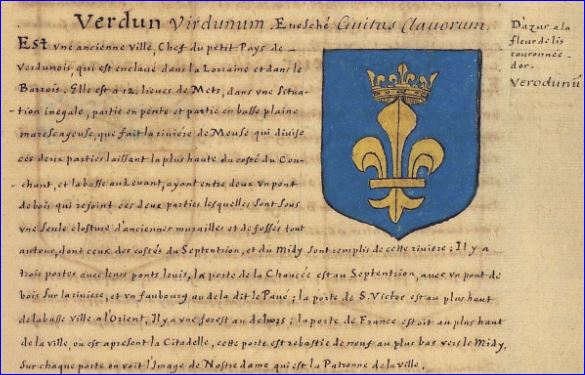 Verdun Virdunum. Euesché Ciuitas Clauorum.
Est vne ancienne ville, Chef du petit Pays de
Verdunois, qui est enclaué dans la Lorraine et dans le
Barrois. Elle est a 12. lieues de Metz, dans vne Situa-
tion inegale, partie en pente et partie en basse plaine
marescageuse, que fait la riuiere de Meuse qui diuise
ces deux parties laissant la plus haute du costé du Cou-
chant, et la basse au Leuant, ayant entre deux vn pont
de bois qui rejoint ces deux parties lesquelles sont sous
vne seule closture d'anciennes murailles et de fossés tout
autour, dont ceux des costés du Septentrion, et du Midy sont remplis de cette riuiere; Il y a
trois portes auec leurs ponts louis, la porte de la Chaucée est au Septentrion, auec vn pont de
bois sur la riuiere, et vn faubourg au dela dit le Paué; la porte de S. Victor est au plus haut
de la basse ville a l'Orient, Il y a vne forest au dehors; la porte de France estoit au plus haut
de la ville, ou est apresent la Citadelle, cette porte est rebastie de neuf au plus bas vers le Midy,
Sur chaque porte on voit l'Image de Nostre dame qui est la Patronne de la ville.
D'azur a la
fleur de lis
couronnée
dor.
Verodunū